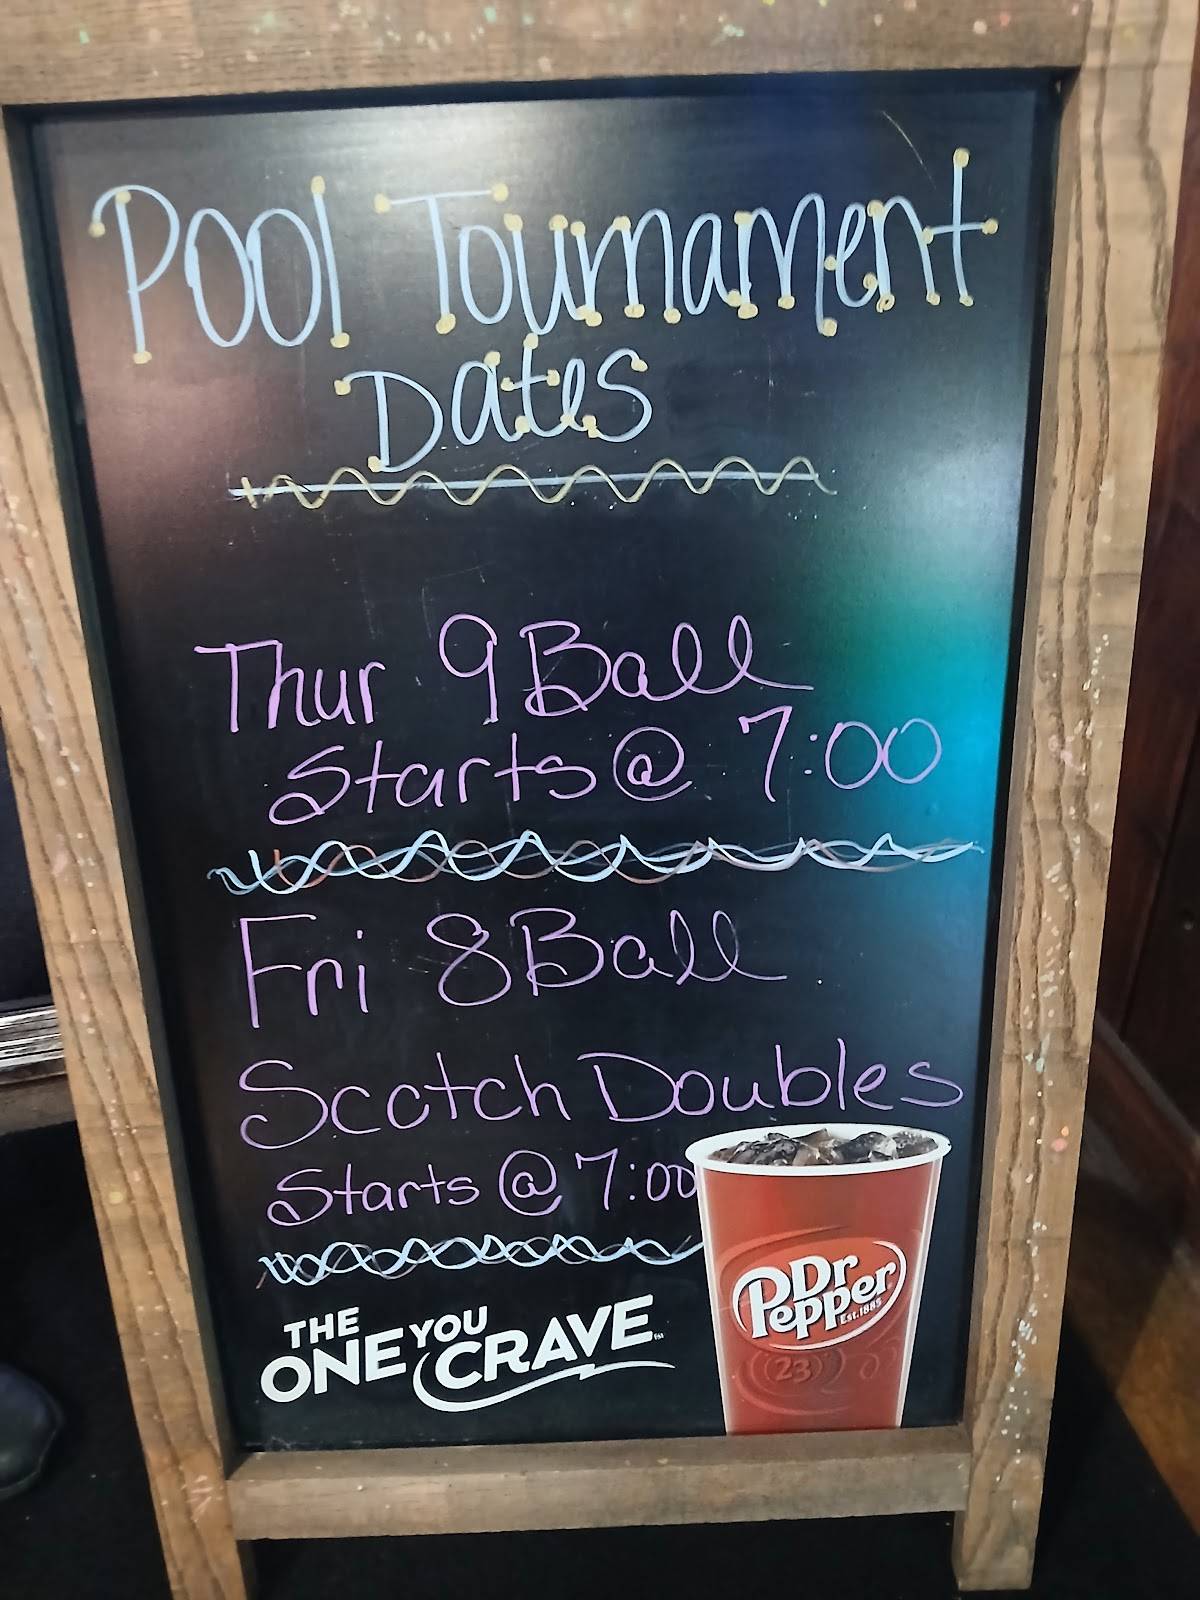 Pool Tournament
Dates
Thur 9 Ball
Starts @ 7:00
Fri 8 Ball
Scotch Doubles
Starts @ 7:00
THE
ONE YOU
CRAVE
Dr
Pepper
Est.1885
23